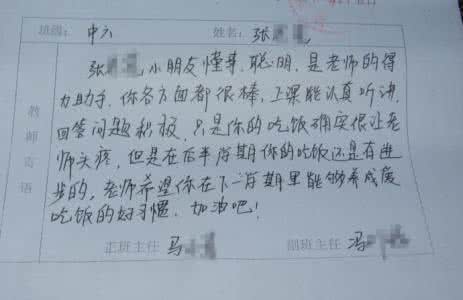 班级: 中六 姓名: 张
张 小朋友懂事、聪明,是老师的得
力助手,你各方面都很棒,上课能认真听讲,
回答问题积极,只是你的吃饭确实很让老
师头疼,但是在后半学期你的吃饭还是有进
步的,老师希望你在下一学期里能够养成
吃饭的好习惯,加油吧!
教师寄语
正班主任 马 副班主任 冯